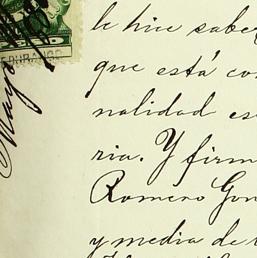 DURANGO
Mayo
le hice saber
que está co
nalidad es
ria. Y firm
Romero Gon
y media de